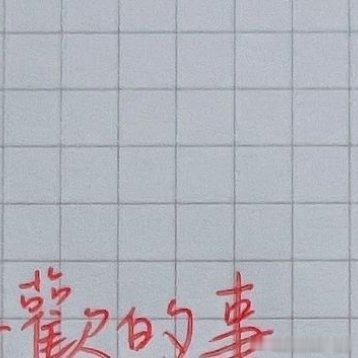 歡的事